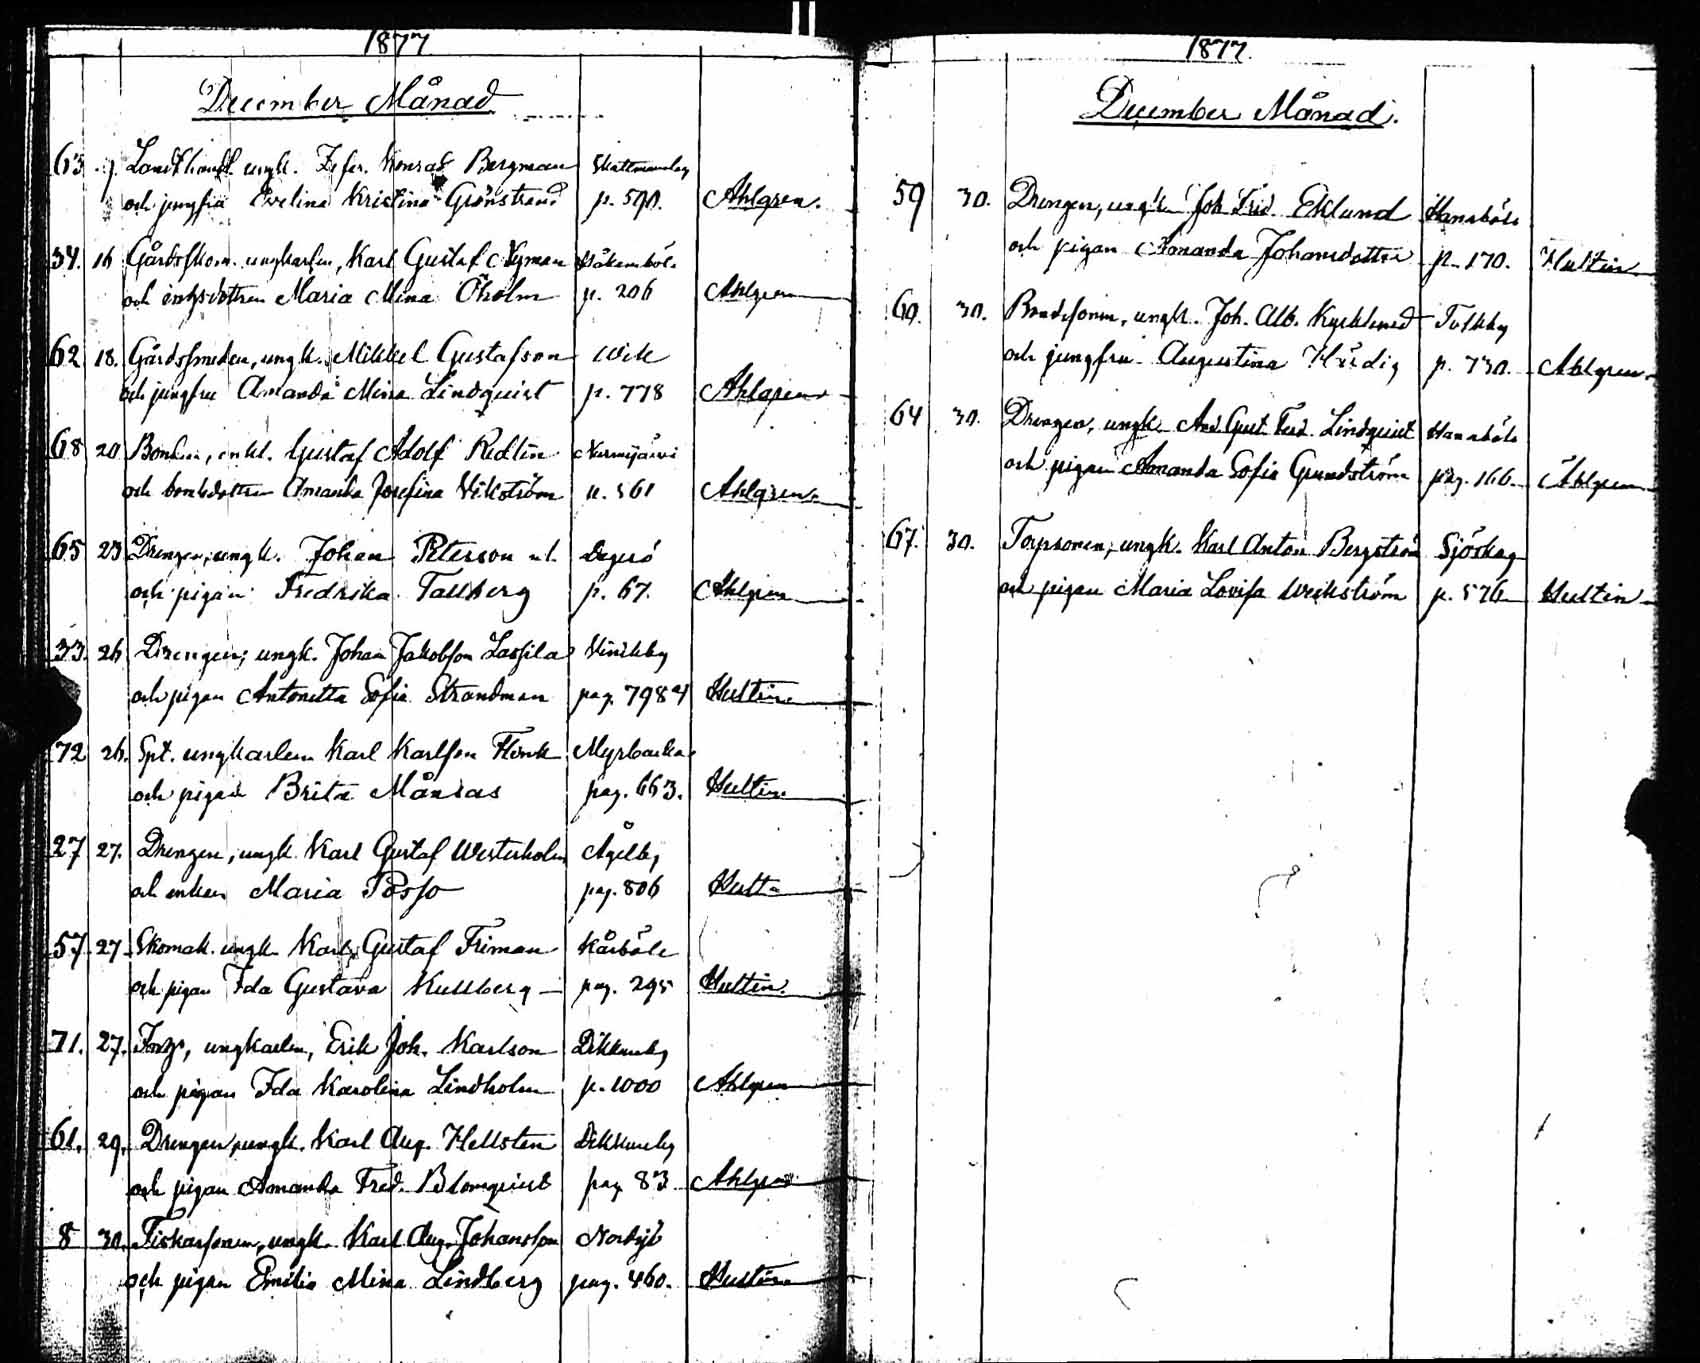 1877
December Månad
63 9. Landthandl. ungk. Zefer. Konrad Bergman
och jungfru Evelina Kristina Grönstrand p. 590. Ahlgren.
54. 16 Gårdsfkom. ungkarlen, Karl Gustaf Nyman
och enksdottren Maria Mina Öholm p. 206 Ahlgren
62 18. Gårdssmeden, ungk. Mikkel Gustafson Wik
och jungfru Amanda Mina Lindquist p. 778 Ahlgren
68 20 Bonden, enkl. Gustaf Adolf Redlin Nurmijärvi
och bondedottren Amanda Josefina Wikström p. 561 Ahlgren
65 23 Drengen, ungk. Johan Peterson Degerö
och pigan Fredrika Tallberg p. 67. Ahlgren
33. 26 Drengen, ungk. Johan Jakobson Lassila Vinikby
och pigan Antonetta Sofia Strandman pag. 798 Hultin
72 26. Spt. ungkarlen Karl Karlson Flink Myrbacka
och pigan Brita Månsas pag. 663. Hultin
27 27. Drengen, ungk. Karl Gustaf Westerholm Ågelby
och enkan Maria Posso pag. 806 Hultin
57 27 Skomak. ungk. Karl Gustaf Friman Kårböle
och pigan Ida Gustava Kullberg pag. 295 Hultin.
71. 27. Torp, ungkarlen, Erik Joh. Karlson Dikkursby
och pigan Ida Karolina Lindholm p. 1000 Ahlgren
61. 29. Drengen, ungk. Karl Aug. Hellsten Dikkursby
och pigan Amanda Fred. Blomquist pag 83 Ahlgren
8 30. Fiskarsonen, ungk. Karl Aug. Johansson Nordsjö
och pigan Emilia Mina Lindberg pag. 460. Hultin
1877.
December Månad.
59 30. Drengen, ungk. Joh. Frid. Eklund Hanaböle
och pigan Amanda Johansdotter p. 170. Hultin
60. 30. Bondesonen, ungk. Joh. Alb. Kycklund Tolkby
och jungfru Augustina Härdig p. 730. Ahlgren
64 30. Drengen, ungk. And. Gust. Ferd. Lindquist Hanaböle
och pigan Amanda Sofia Grundström pag. 166. Ahlgren
67. 30. Torpsonen, ungk. Karl Anton Bergström Sjöskog
och pigan Maria Lovisa Weckström p. 576 Hultin